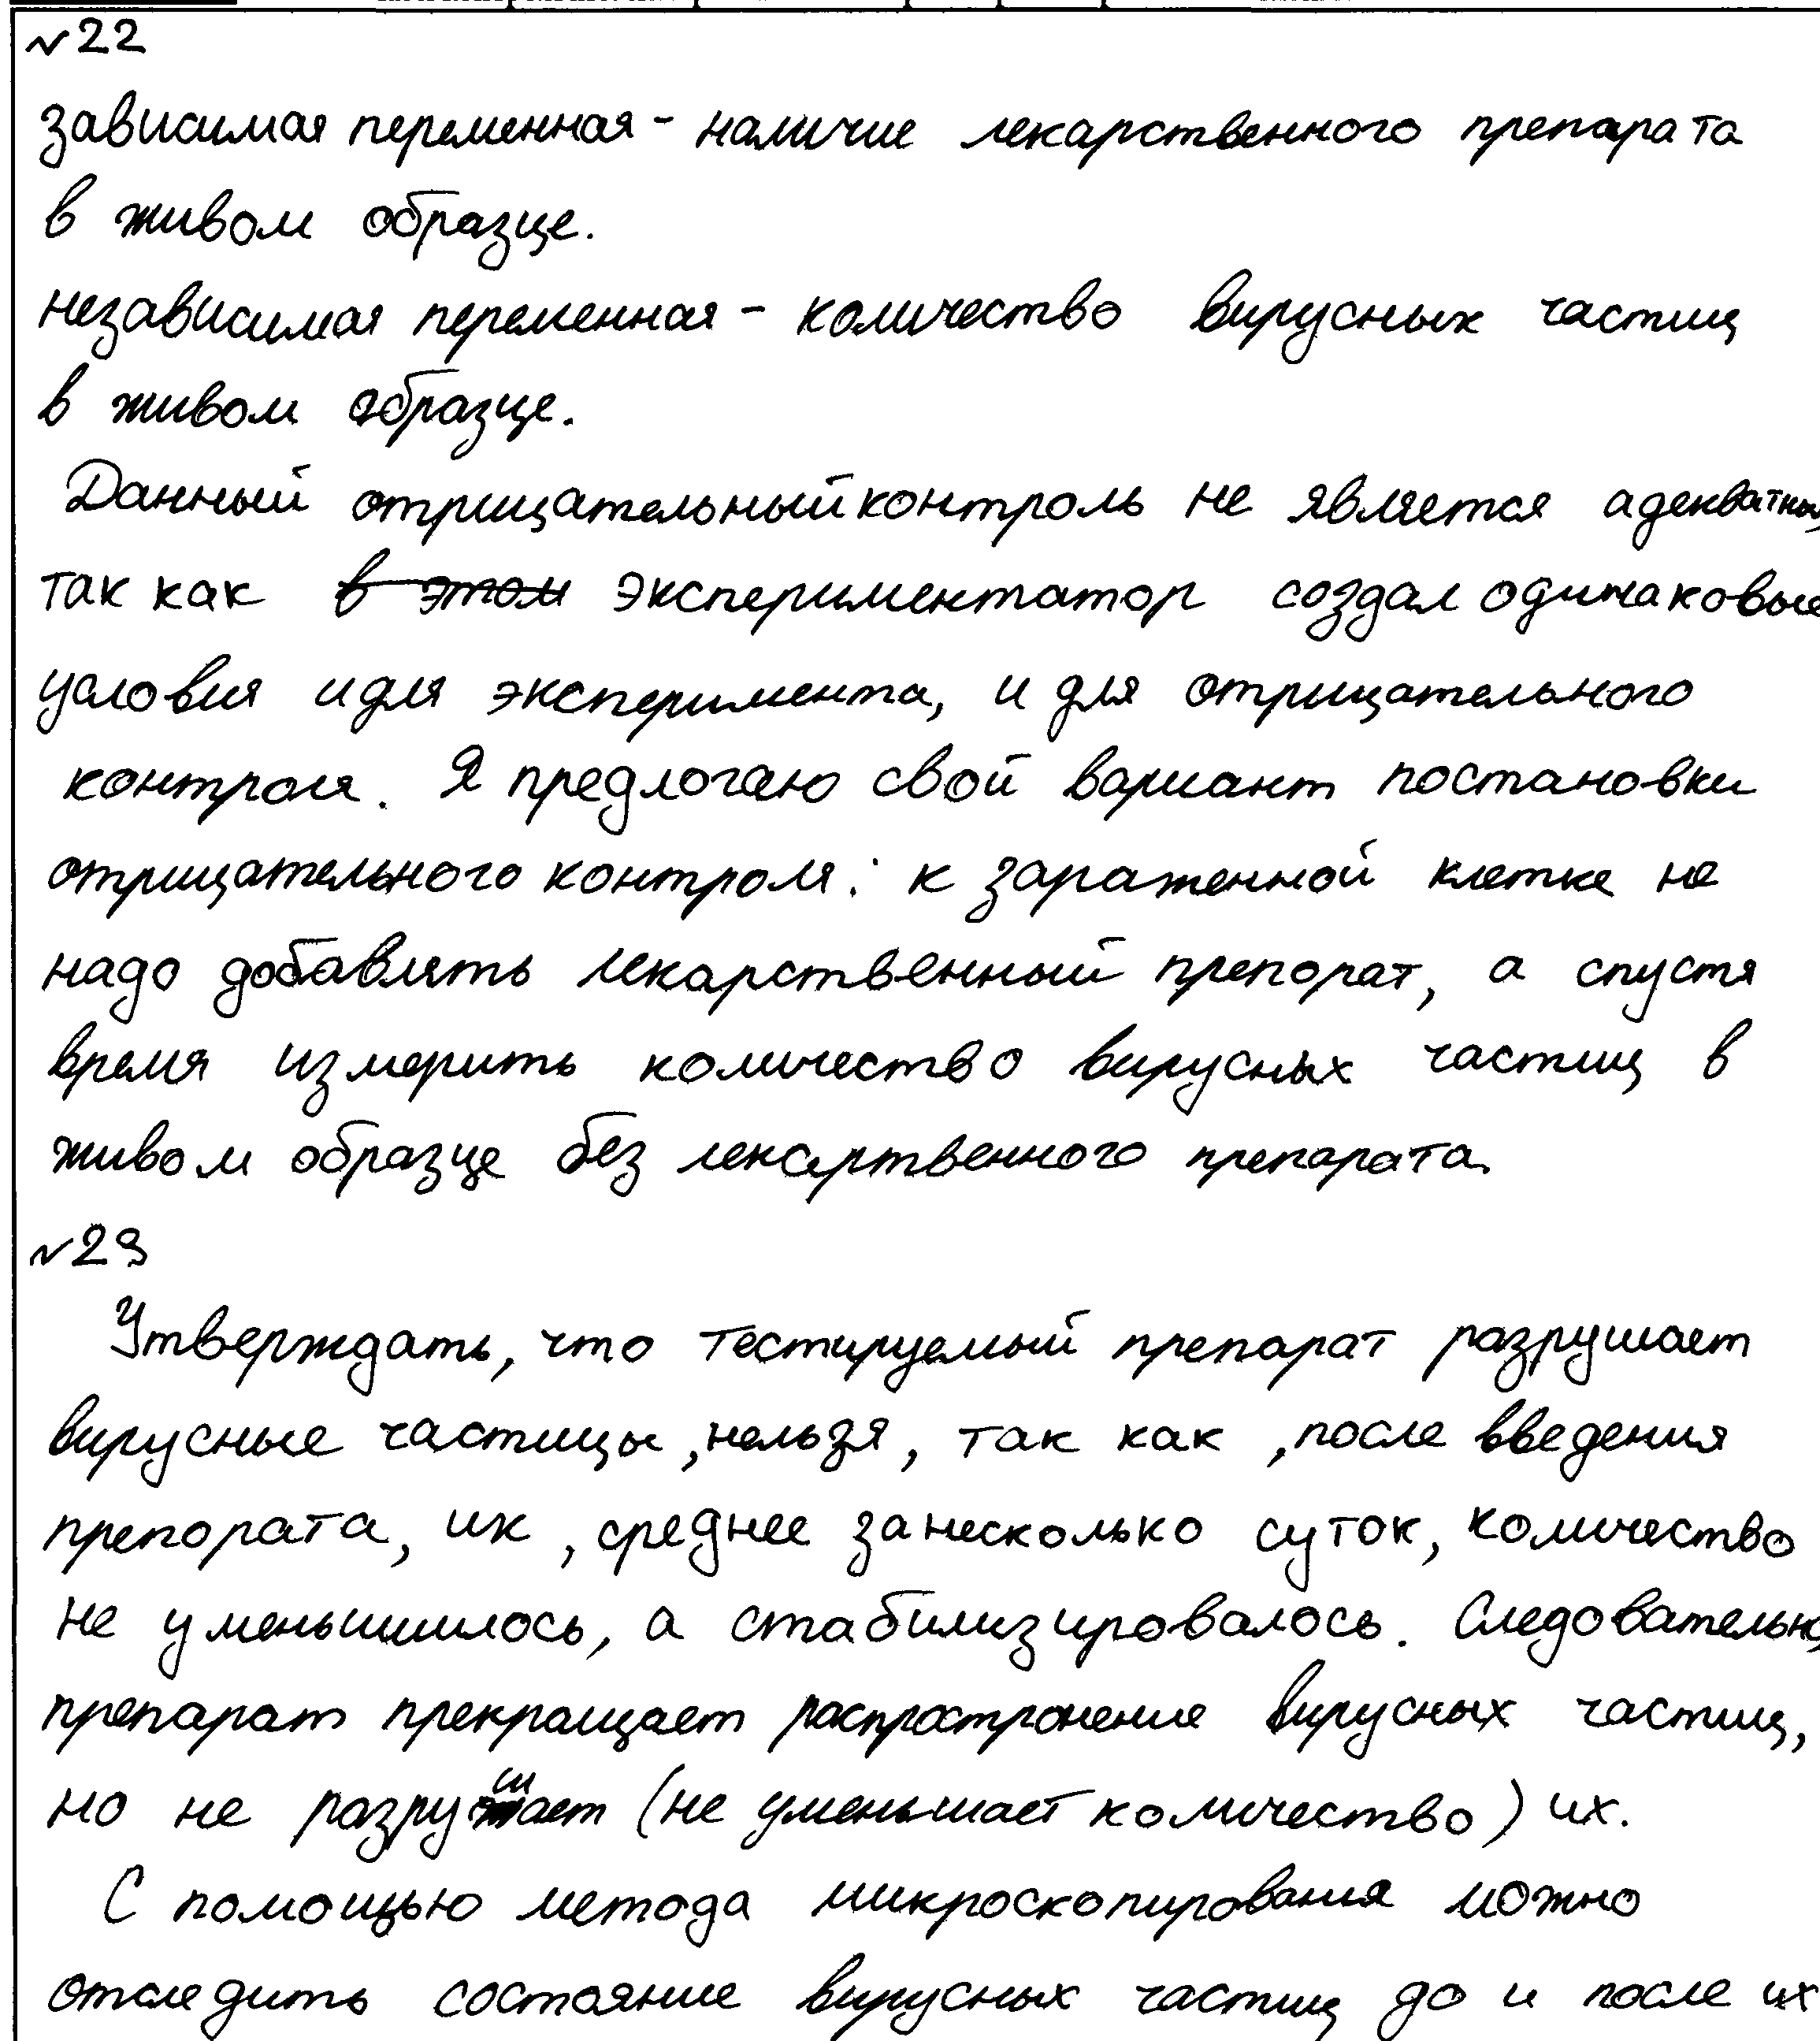 №22
зависимая переменная - наличие лекарственного препарата
в живом образце.
независимая переменная - количество вирусных частиц
в живом образце.
Данный отрицательный контроль не является адекватным,
так как в этом экспериментатор создал одинаковые
условия и для эксперимента, и для отрицательного
контроля. Я предлогаю свой вариант постановки
отрицательного контроля: к зараженной клетке не
надо добавлять лекарственный препорат, а спустя
время измерить количество вирусных частиц в
живом образце без лекартвенного препарата.
№23
Утверждать, что тестируемый препарат разрушает
вирусные частицы, нельзя, так как, после введения
препората, их, среднее за несколько суток, количество
не уменьшилось, а стабилизировалось. Следовательно,
препарат прекращает распростронение вирусных частиц,
но не разрушает (не уменьшает количество) их.
С помощью метода микроскопирования можно
отследить состояние вирусных частиц до и после их